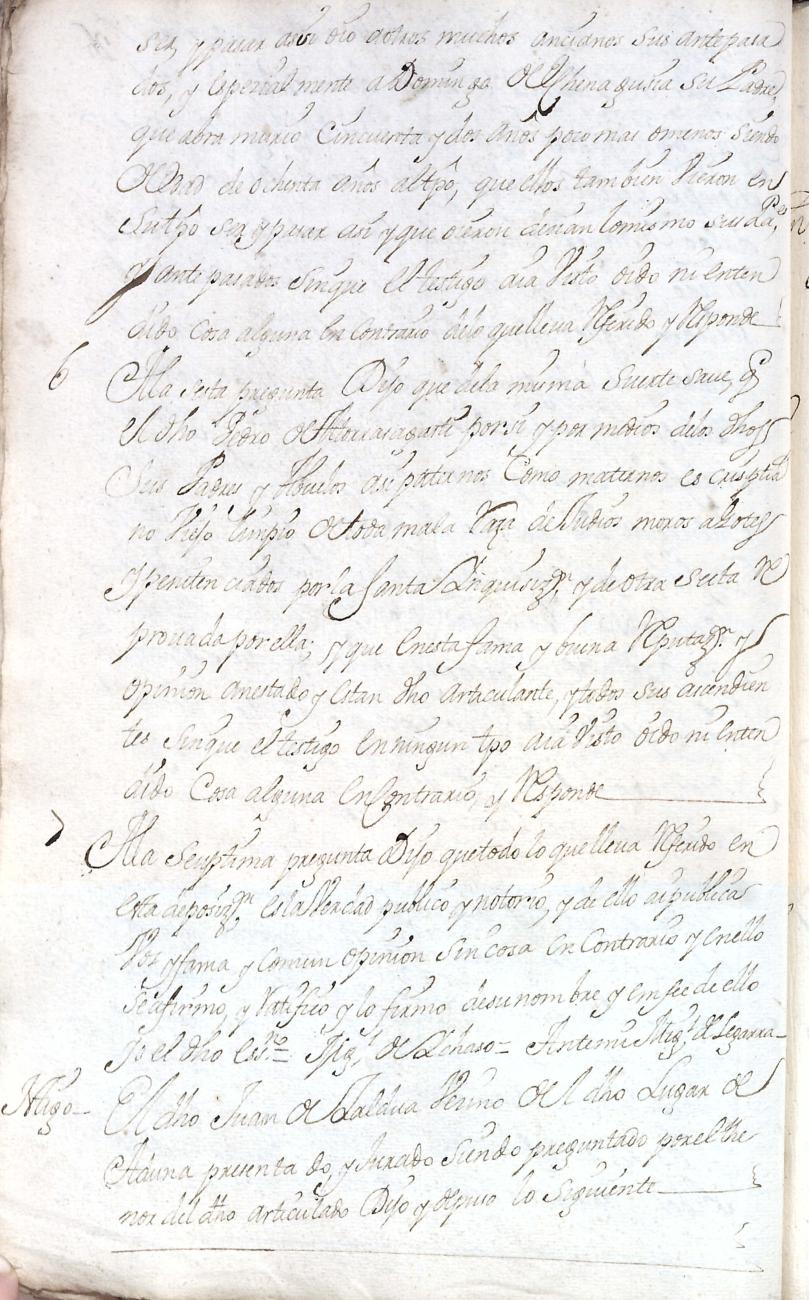 ser, y pasar assi oio a otros muchos ancianos sus antepasa
dos, y espezialmente a Domingo de Echenagusia su Padre,
que abra murio Cincuenta y dos años poco mas o menos siendo
de hedad de ochenta años al tpo, que ellos tambien Vieron en
su tpo ser y pasar asi y que oieron decian lo mismo sus Pes
y ante pasados sin que el testigo aia Visto oido ni enten
dido cosa alguna en contrario dijo que lleva Referido y Responde
6 A la sesta pregunta Dijo que de la misma suerte save, q
el dho Pedro de por si y por medios de los dhos
sus Padres y Abuelos asi paternos Como maternos es cristia
no Viejo limpio de toda mala Raza de Judios moros agotes
y penitenciados por la Santa Inquisizn, y de otra secta Re
provada por ella; y que en esta fama y buena Reputazn y
opinion an estado y estan dho articulante, y todos sus ascendien
tes sin que el testigo en ningun tpo aia Visto oido ni enten
dido Cosa alguna en Contrario, y Responde
7 A la septima pregunta Dijo que todo lo que lleva Referido en
esta deposizn es la Verdad publico y notorio, y de ello ai publica
Voz y fama y comun opinion sin cosa en contrario y en ello
se afirmo, y Ratifico y lo firmo de su nombre y en fee de ello
yo el dho Essno = Migl de Lchaso = Antemi Migl de Legarra
Ttigo El dho Juan de Zaldua Vezino del dho Lugar de
Aduna presentado, y Jurado siendo preguntado por el the
nor del dho articulado Dijo y depuso lo Siguiente